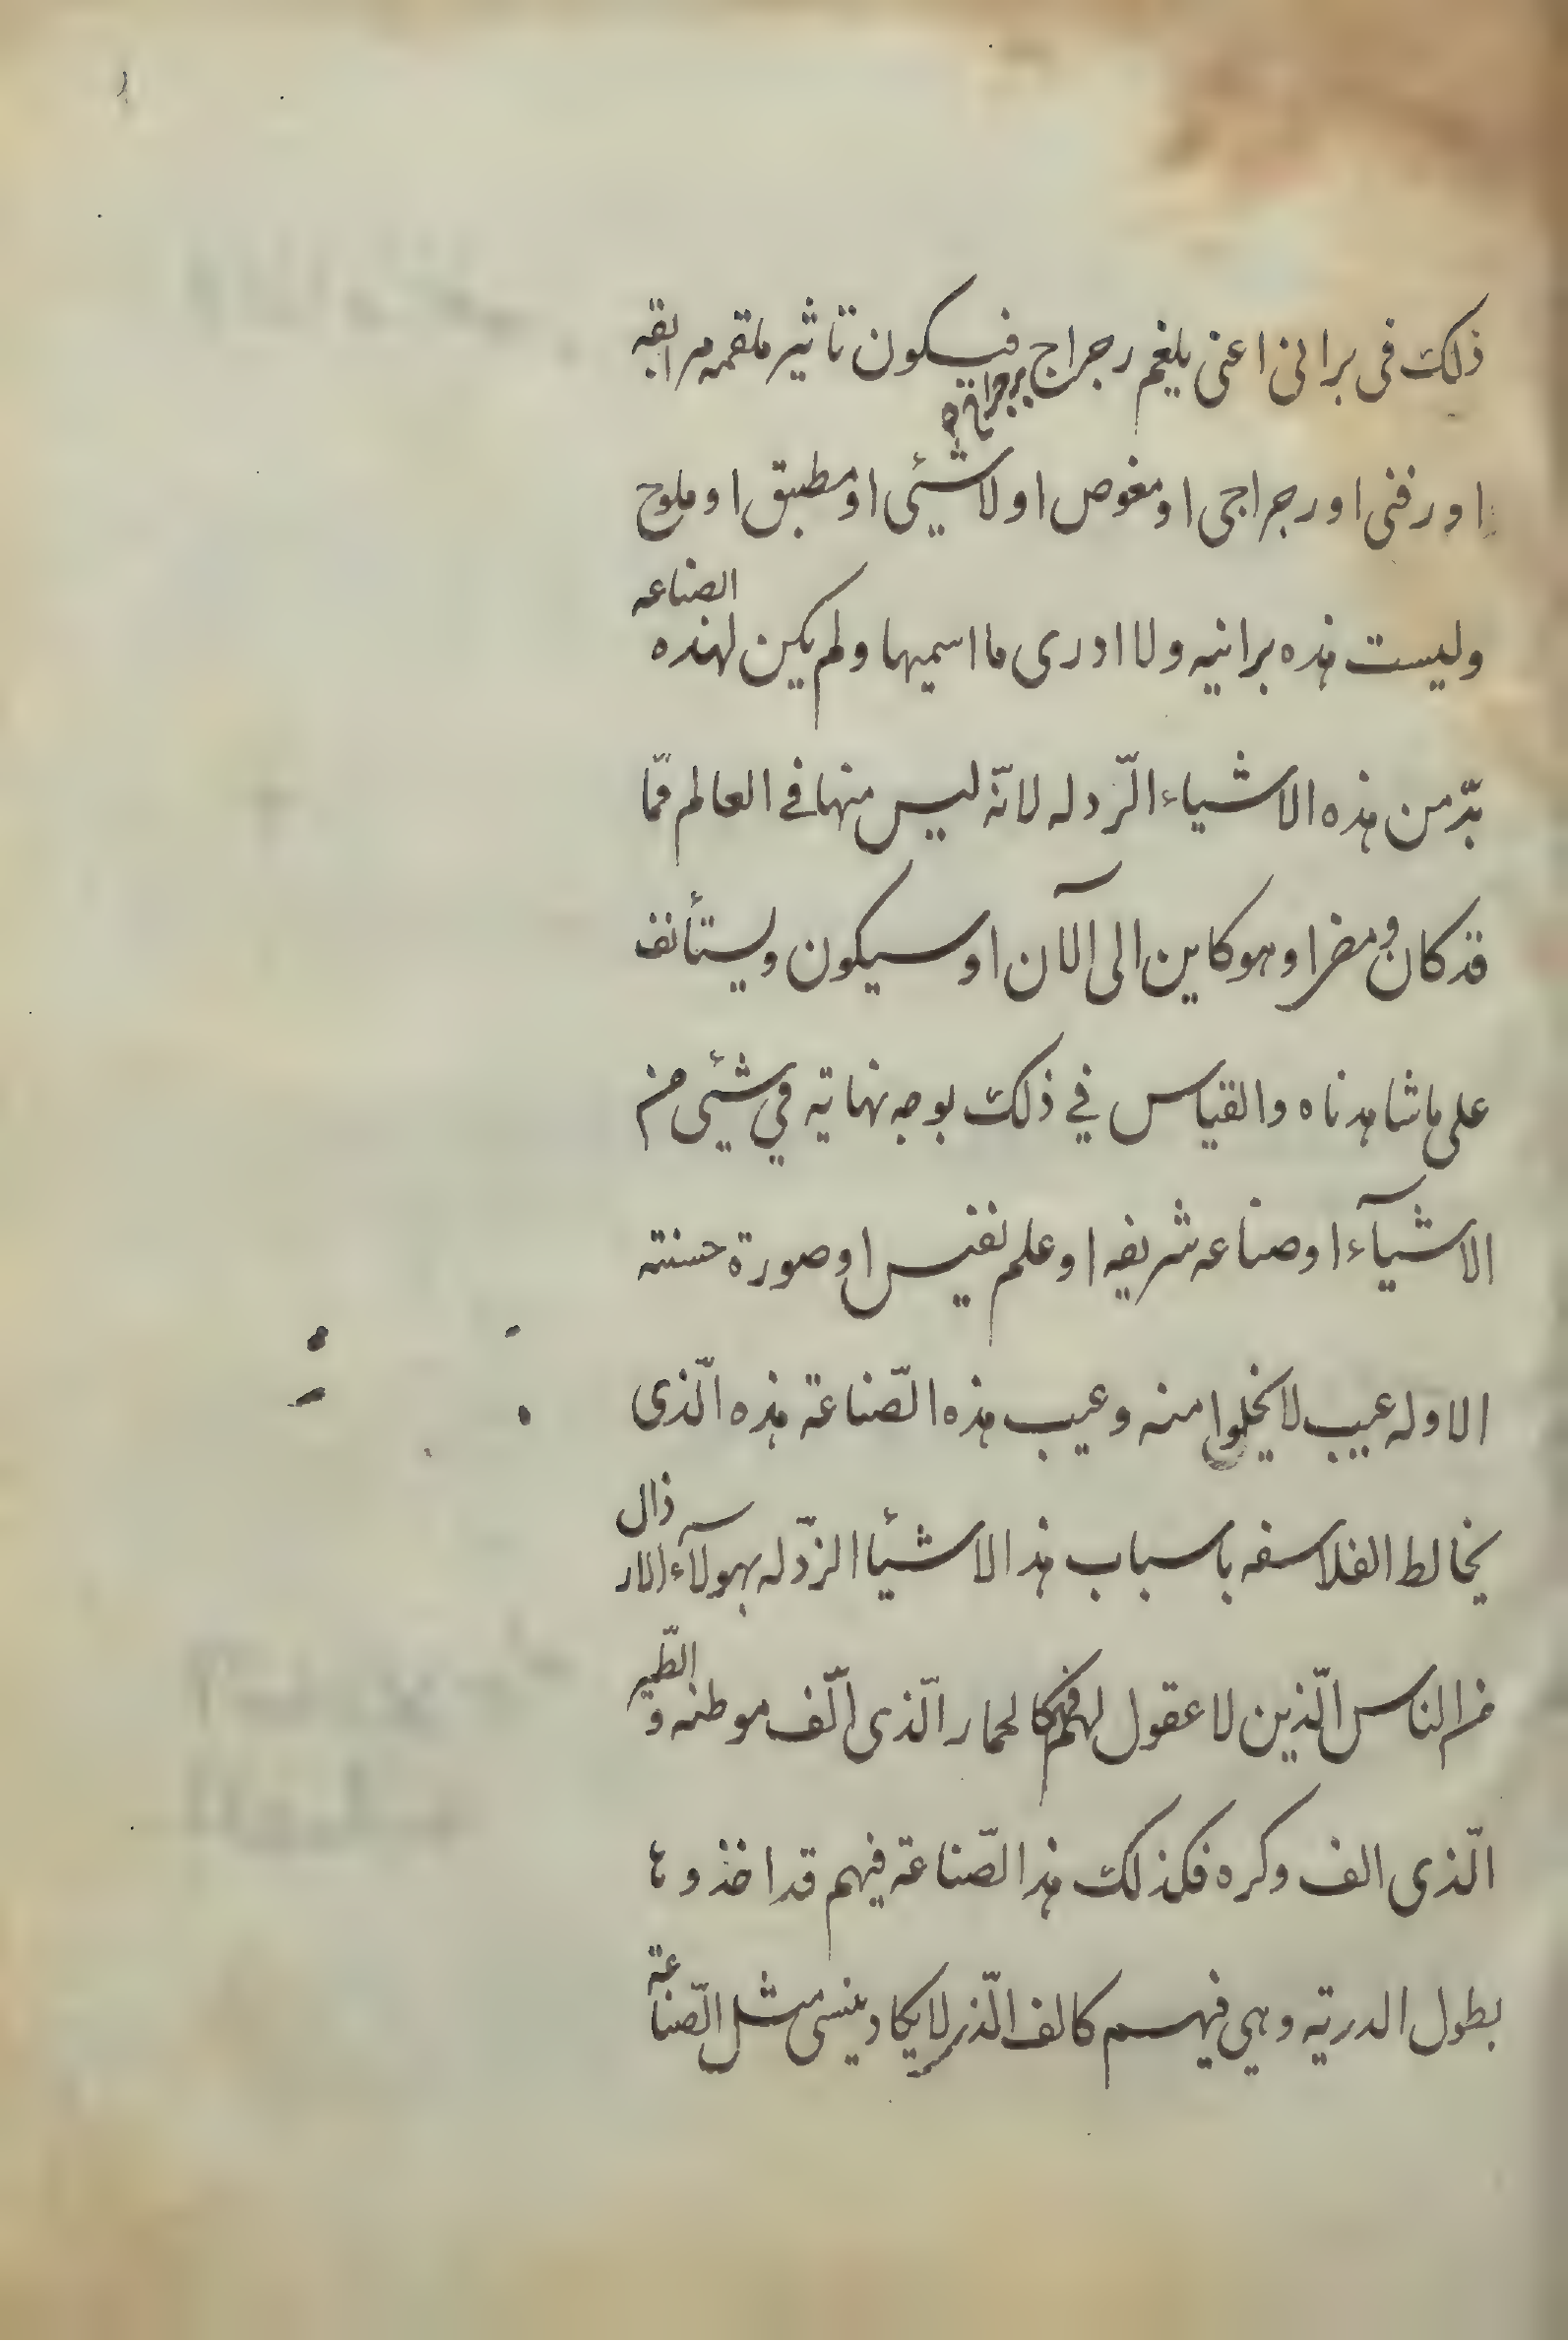 ذلك فى برانى اعنى بلغم رجراج فيكون تاثير ملقمه مرابقه
او رفنى او رجراجى او مغوص او لاشيئ او مطبق او ملوح
وليست هذه برانيه ولا ادرى ما اسميها ولم يكن لهذه الصناعه
بدّ من هذه الاشياء الرّدله لانّه ليس منها فى العالم ممّا
قد كان ومضى او هو كاين الى الآن او سيكون ويستأنف
على ما شاهدناه والقياس في ذلك بوجه نهاية في شيئ من
الاشيآء او صناعه شريفه او علم نفيس او صورة حسنته
الا وله عيب لا يخلوا منه وعيب هذه الصّناعة هذه الّذى
يخالط الفلاسفه باسباب هذ الاشيئا الرّذله بهولآء الارذال
من الناس الّذين لا عقول لهم فهم كالحمار الّذى الّف موطنه والطّير
الّذى الف وكره فكذلك هذ الصّناعة فيهم قد اخذوها
بطول الدرية وهي فيهم كالف الّذى لا يكاد ينسى مثل الصّناعة